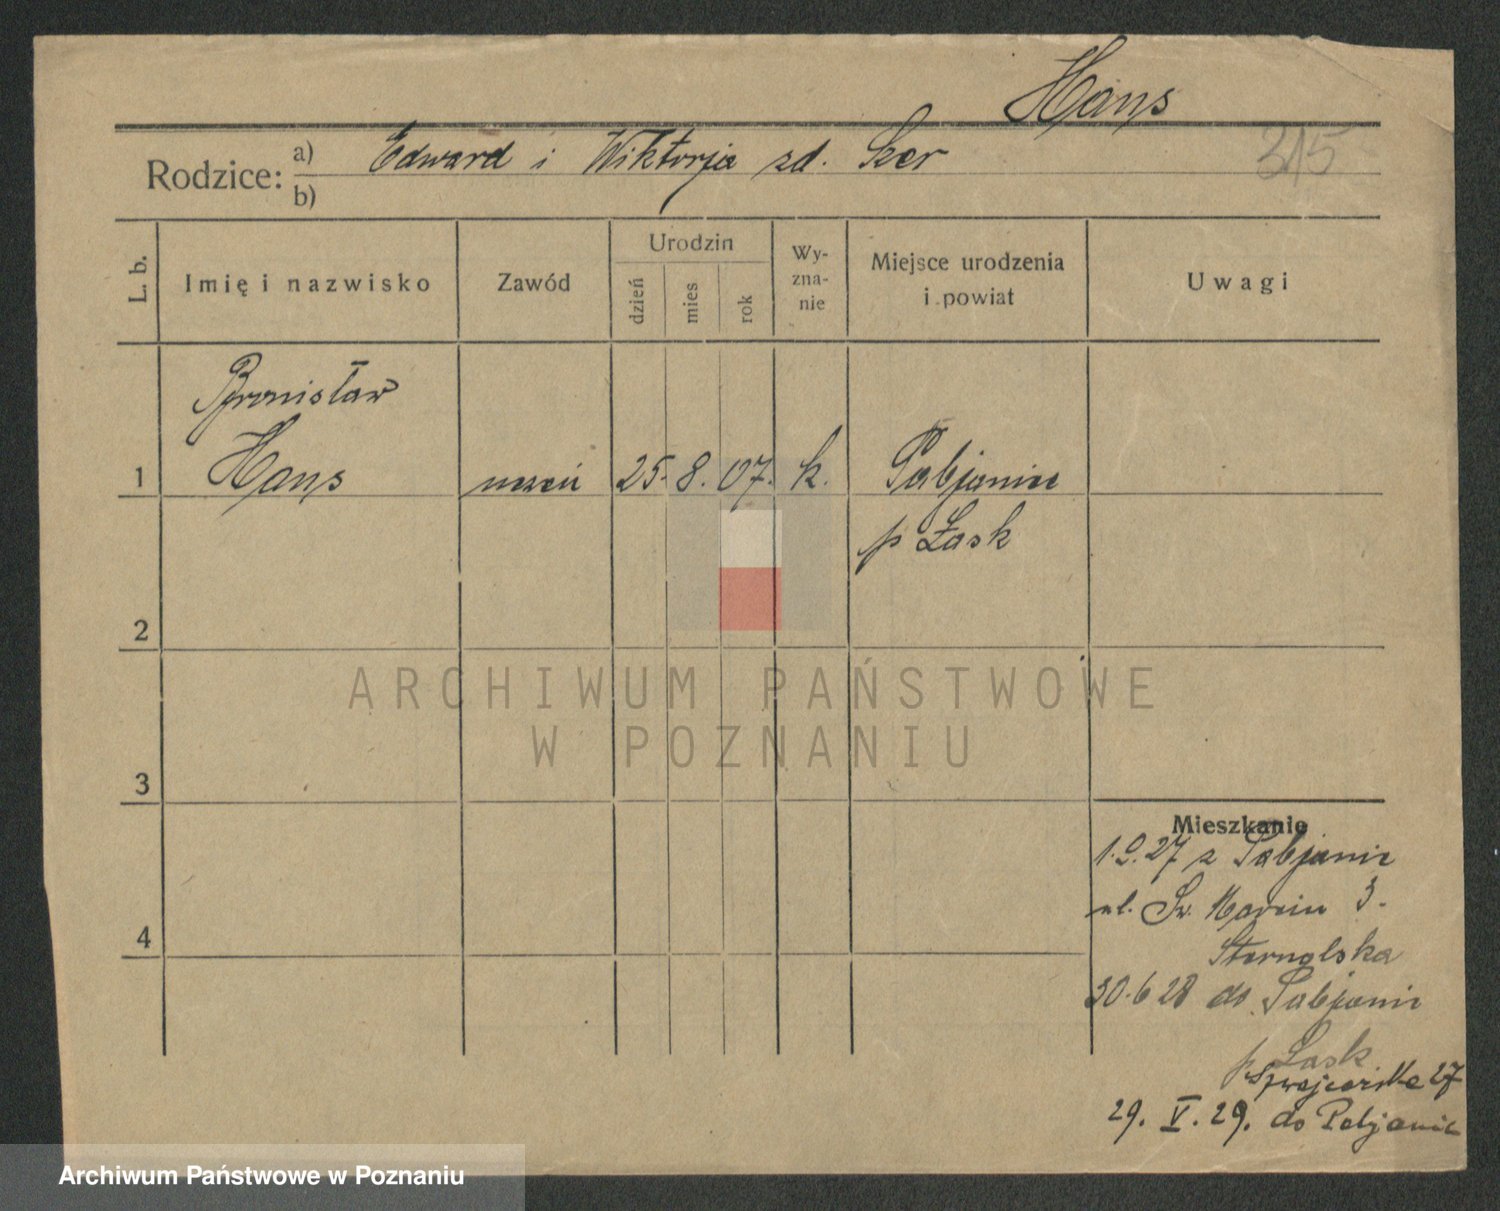 Hans
315
Rodzice: a) Edward i Wiktorja zd. Szer
b)
L. b. Imię i nazwisko Zawód Urodzin dzień mies rok Wy-zna-nie Miejsce urodzenia i powiat Uwagi
Bronisław
1 Hans uczeń 25. 8. 07. k. Pabjanice
p Łask
2
ARCHIWUM PAŃSTWOWE
W POZNANIU
3
Mieszkanie
1.9.27 z Pabjanic
ul. Św. Marcin 3.
4
30.6 28 do Pabjanic
p Łask
27
29. V. 29. do Pabjanic
Archiwum Państwowe w Poznaniu